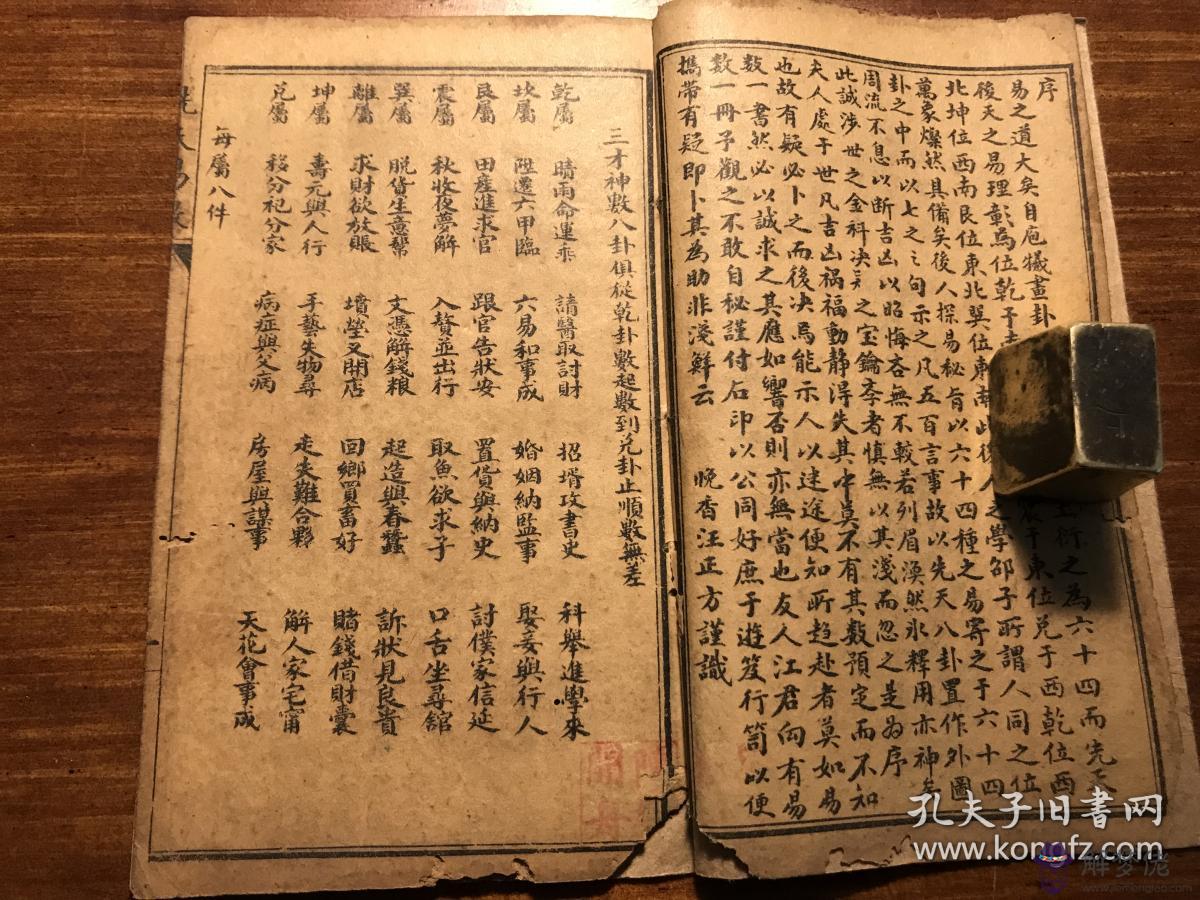 序
易之道大矣自庖犧畫卦
五衍之為六十四而先天
後天之易理彰焉位乾于
震于東位兌于西乾位西
北坤位西南艮位東北巽位東南此後人之學邵子所謂人同之位
萬象燦然具備矣後人探易秘旨以六十四種之易寄之于六十四
卦之中而以七之之句示之凡五百言事故以先天八卦置作外圖
周流不息以断吉凶以昭悔吝無不較若列眉渙然氷釋用亦神矣
此誠涉世之金科决之宝鑰李者慎無以其淺而忽之是為序
夫人處于世凡吉凶祸福動靜得失其中莫不有其數預定而不知
也故有疑必卜之而後决焉能示人以迷途便知所趋赴者莫如易
數一書然必以誠求之其應如響否則亦無當也友人江君向有易
數一冊予觀之不敢自秘謹付石印以公同好庶于遊笈行笥以便
攜带有疑即卜其為助非淺鮮云 晚香汪正方謹識
三才神數八卦俱從乾卦數起數到兌卦止順數無差
乾屬 晴雨命運乖 請醫取討財 招壻攻書史 科舉進學來
坎屬 陞遷六甲臨 六易和事成 婚姻納監事 娶妾與行人
艮屬 田産進求官 跟官告狀安 置貨與納史 討僕家信延
震屬 秋收夜夢解 入贅並出行 取魚欲求子 口舌坐尋舘
巽屬 脫貨生意幫 文憑解錢粮 起造與春蠶 訴狀見良貴
離屬 求財欲放賬 墳塋又開店 回鄉買畜好 賭錢借財囊
坤屬 壽元與人行 手藝失物尋 走失難合夥 解人家宅甯
兌屬 移分祀分家 病症與父病 房屋與謀事 天花會事成
每屬八件
孔夫子旧书网
www.kongfz.com
解梦佬
www.jiemenglao.com